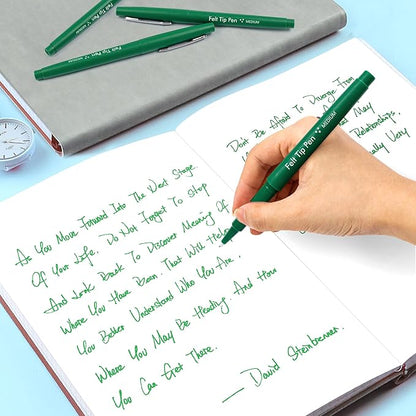 Felt Tip Pen MEDIUM
Felt Tip Pen MEDIUM
Felt Tip Pen MEDIUM
As You Move Forward Into The Next Stage
Of Your Life, Do Not Forget To Stop
And Look Back To Discover Meaning Of
Where You Have Been. That Will Help
You Better Understand Who You Are.
Where You May Be Heading. And How
You Can Get There.
— David Steinbrenner
Don't Be Afraid To Diverge From
May
Relationships.
Very